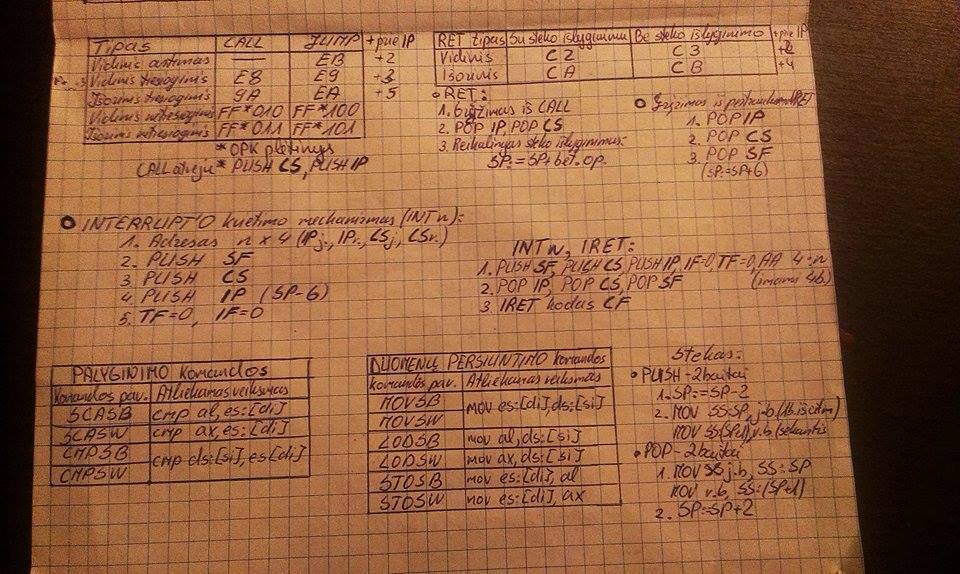 Tipas CALL JUMP +prie IP
Vidinis artimas — EB +2
Vidinis tiesioginis E8 E9 +3
Išorinis tiesioginis 9A EA +5
Vidinis netiesioginis FF*010 FF*100
Išorinis netiesioginis FF*011 FF*101
* OPK plėtinys
CALL atveju* PUSH CS, PUSH IP
RET tipas Su steko išlyginimu Be steko išlyginimo +prie IP
Vidinis C2 C3
Išorinis CA CB +4
RET:
1. Grįžimas iš CALL
2. POP IP, POP CS
3. Reikalingas steko išlyginimas:
SP:=SP+bet.op.
Grįžimas iš IRET
1. POP IP
2. POP CS
3. POP SF
(SP:=SP+6)
INTERRUPT'O kvietimo mechanizmas (INT n):
1. Adresas n x 4 (IPj., IPv., CSj, CSv.)
2. PUSH SF
3. PUSH CS
4. PUSH IP (SP-6)
5. TF=0, IF=0
INT n, IRET:
1. PUSH SF, PUSH CS, PUSH IP, IF=0, TF=0, AA 4·n
(imami 4b.)
2. POP IP, POP CS, POP SF
3. IRET kodas CF
PALYGINIMO komandos
Komandos pav. Atliekamas veiksmas
SCASB cmp al, es:[di]
SCASW cmp ax, es:[di]
CMPSB cmp ds:[si], es[di]
CMPSW
DUOMENŲ PERSIUNTIMO komandos
Komandos pav. Atliekamas veiksmas
MOVSB mov es:[di], ds:[si]
MOVSW
LODSB mov al, ds:[si]
LODSW mov ax, ds:[si]
STOSB mov es:[di], al
STOSW mov es:[di], ax
Stekas:
PUSH-2baitai
1. SP:=SP-2
2. MOV SS:SP, j.b.
MOV SS:(SP+1), v.b.
POP-2baitai
1. MOV j.b, SS:SP
MOV v.b, SS:(SP+1)
2. SP:=SP+2